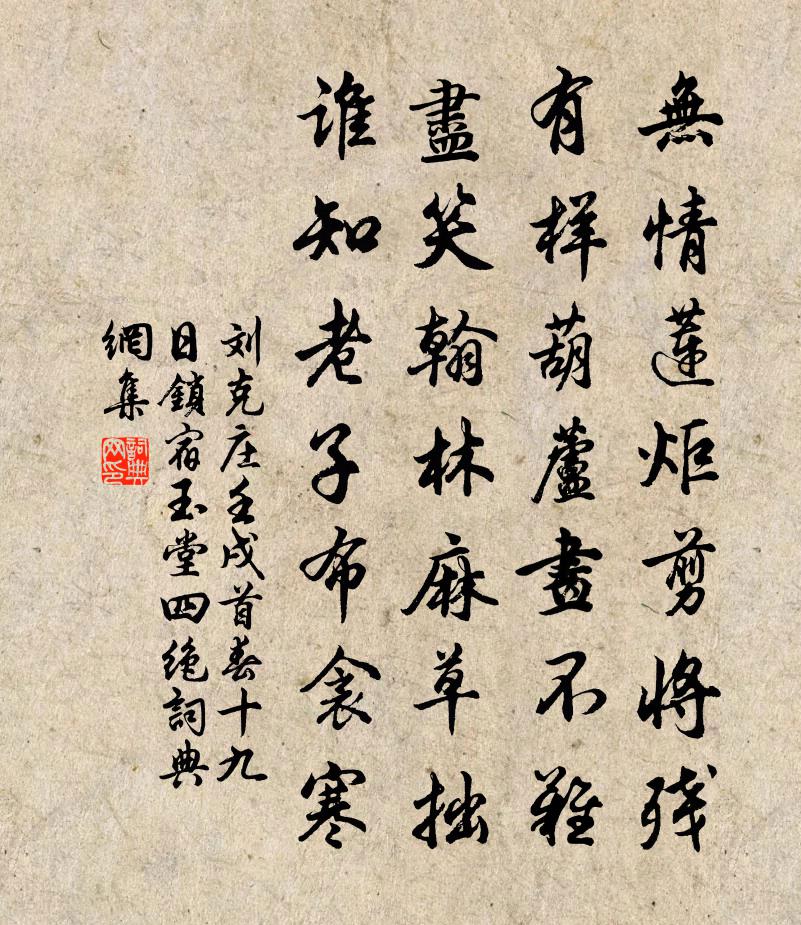 無情蓮炬剪將残
有样葫蘆畫不難
盡笑翰林麻草拙
谁知老子布衾寒
刘克庄壬戌首春十九
日鎖宿玉堂四绝詞典
網集
詞典
网印